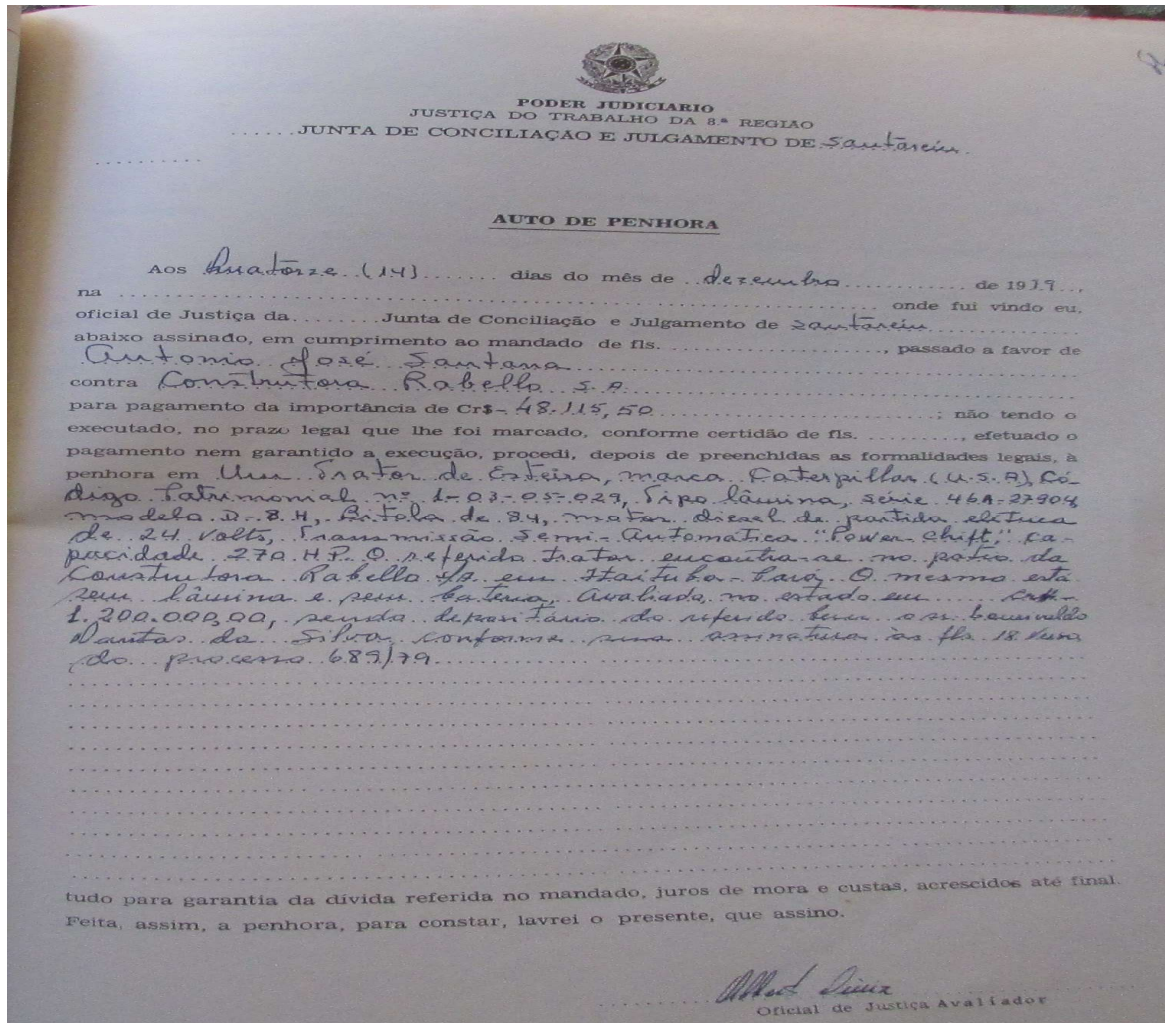 PODER JUDICIARIO
JUSTIÇA DO TRABALHO DA 8.ª REGIÃO
......JUNTA DE CONCILIAÇÃO E JULGAMENTO DE Santarém.
..........
AUTO DE PENHORA
Aos Quatorze (14)....... dias do mês de ..dezembro............ de 1979..,
na ................................................ onde fui vindo eu,
oficial de Justiça da........Junta de Conciliação e Julgamento de Santarém
abaixo assinado, em cumprimento ao mandado de fls. ......................, passado a favor de
Antonio José Santana
contra Construtora Rabello S.A.
para pagamento da importância de Cr$- 48.115,50 ............................; não tendo o
executado, no prazo legal que lhe foi marcado, conforme certidão de fls. .........., efetuado o
pagamento nem garantido a execução, procedi, depois de preenchidas as formalidades legais, à
penhora em Um Trator de Esteira, marca Caterpillar (U.S.A) Có-
digo Patrimonial nº 1-03-05-029, Tipo lâmina, série 46A-27904
modelo D-8 H, Bitola de 84, motor diesel de partida eletrica
de 24 volts, Transmissão Semi-Automatica "Power Shift", ca-
pacidade 270 H.P. O referido trator encontra-se no patio da
Construtora Rabello S/A em Itaituba-Pará. O mesmo está
sem lâmina e sem bateria, Avaliado, no estado em Cr$-
1.200.000,00, sendo depositário do referido bem o sr.
Dantas da Silva, conforme sua assinatura às fls 18 verso
do processo 689/79
tudo para garantia da dívida referida no mandado, juros de mora e custas, acrescidos até final.
Feita, assim, a penhora, para constar, lavrei o presente, que assino.
Oficial de Justiça Avaliador